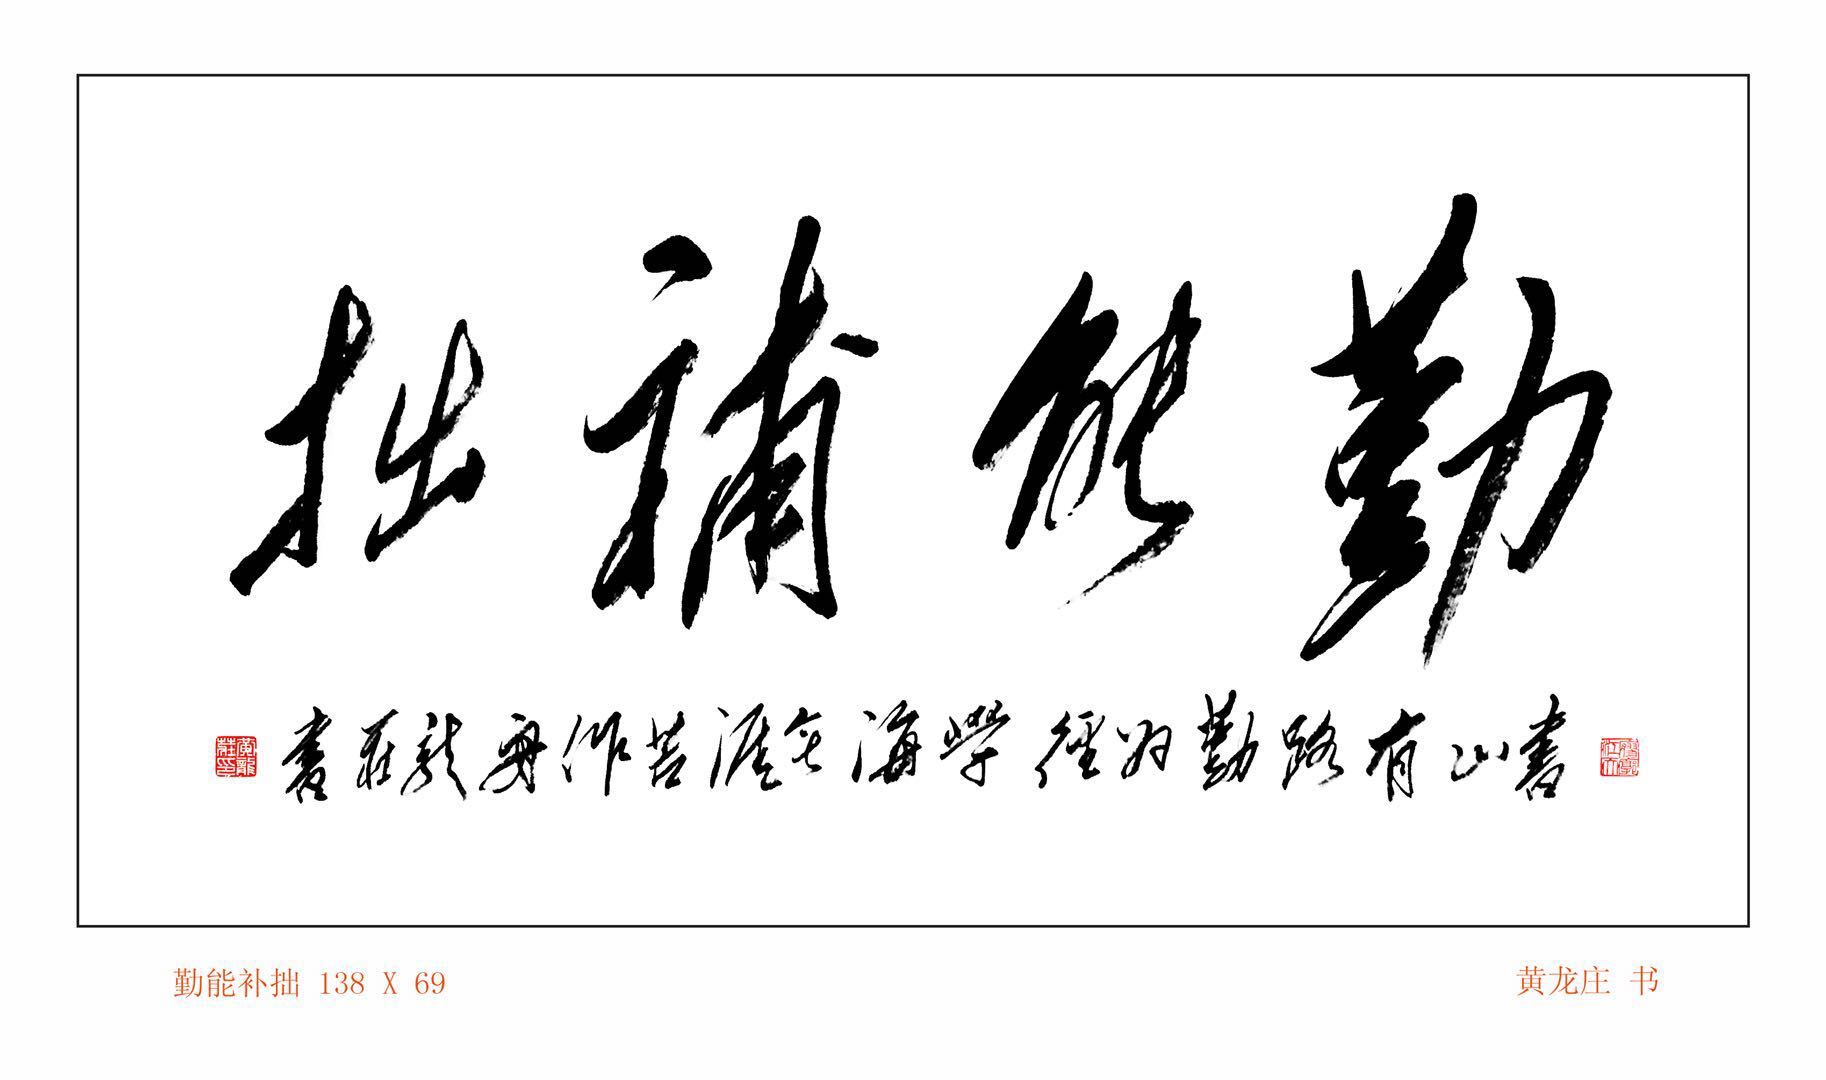 勤能補拙
書山有路勤为徑學海无涯苦作舟龍莊書
黃龍莊印
勤能补拙 138 X 69
黄龙庄 书